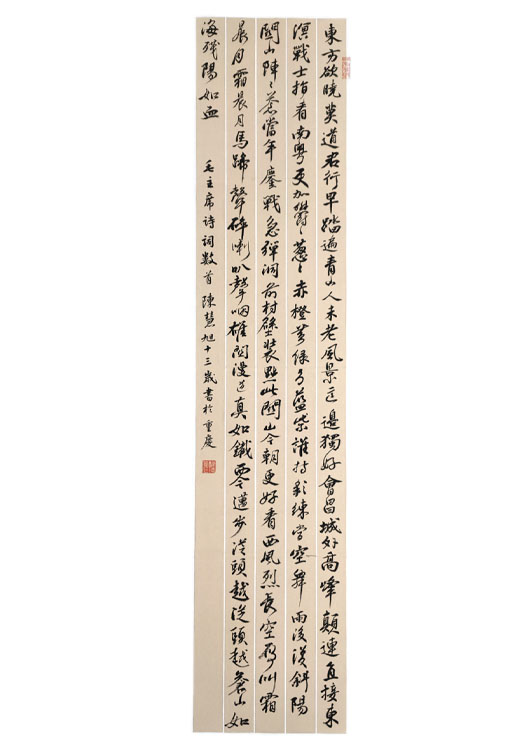 東方欲曉莫道君行早踏遍青山人未老風景这邊獨好會昌城外高峰顛連直接東
溟戰士指看南粵更加鬱々蔥々赤橙黄绿青藍紫誰持彩練當空舞雨後復斜陽
關山陣々蒼當年鏖戰急彈洞前村壁裝點此關山今朝更好看西風烈長空雁叫霜
晨月霜晨月馬蹄聲碎喇叭聲咽雄關漫道真如鐵而今邁步從頭越從頭越蒼山如
海殘陽如血
毛主席诗詞数首陳慧旭十三歲書於重慶